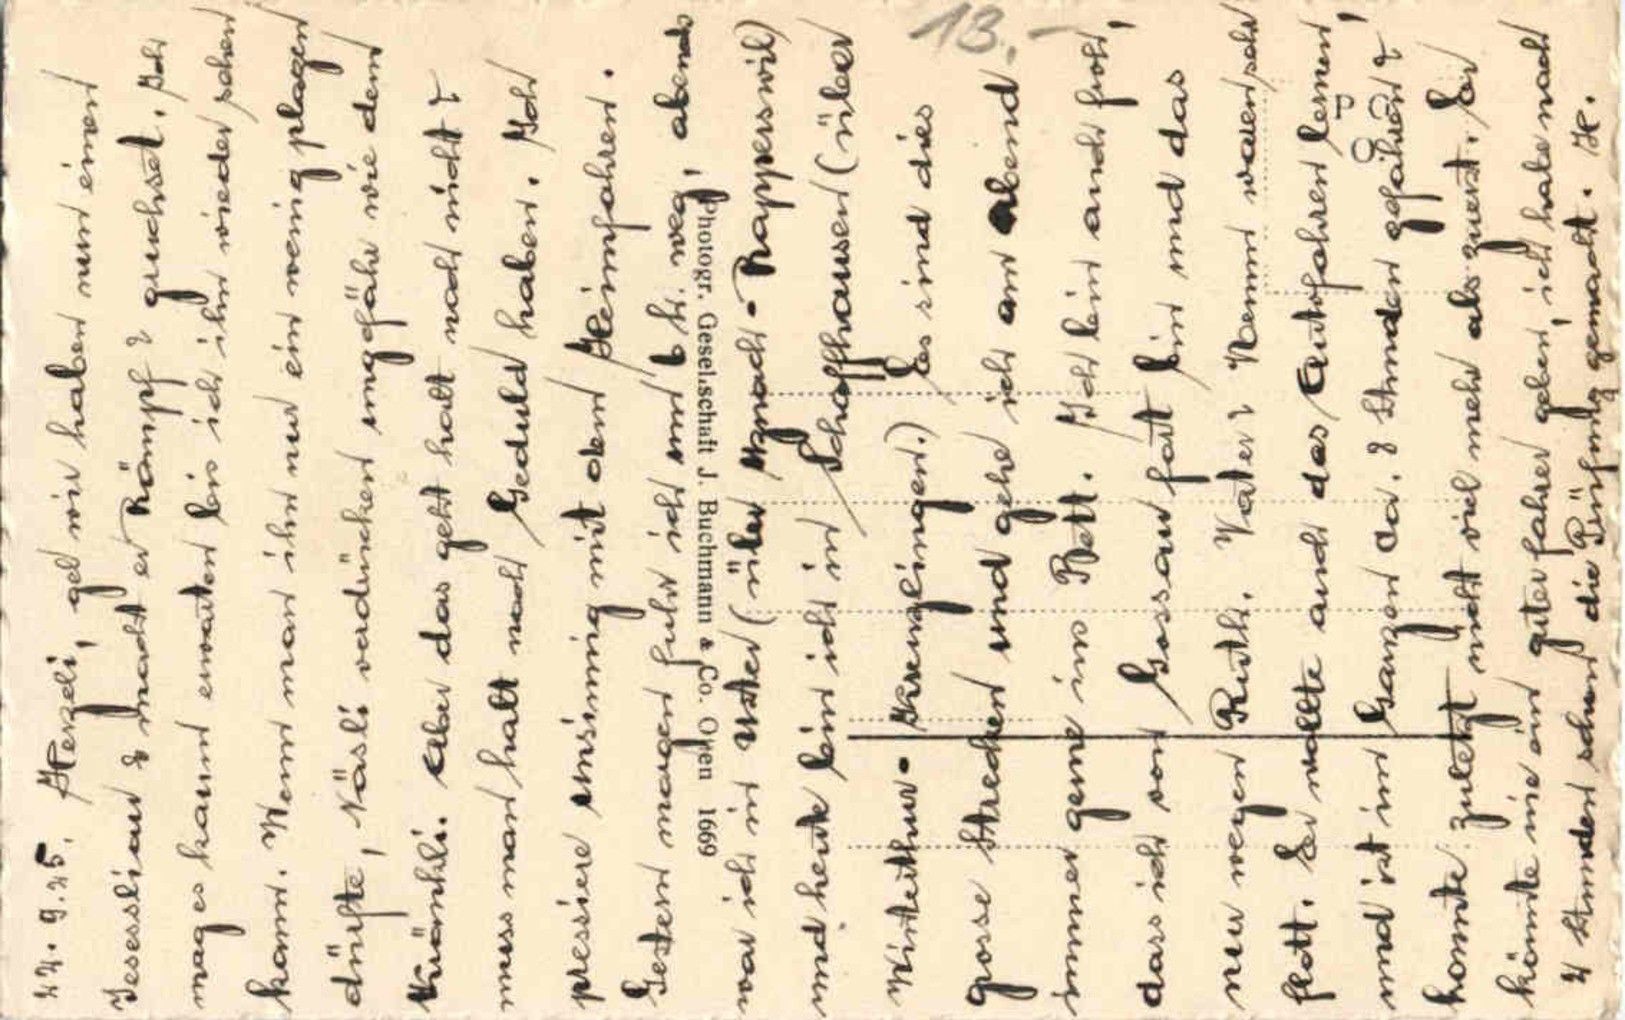 22.9.25. Herzeli, gel wir haben nun einen
Jesesslian & macht er Rämpf & guuchset. Ich
mag es kaum erwarten bis ich ihn wieder sehen
kann. Wenn man ihn nur ein wenig plagen
dürfte, Näsli verdrücken ungefähr wie dem
Küünhli. Aber das geht halt noch nicht &
muss man halt noch Geduld haben. Ich
pressiere unsinnig mit dem Heimfahren.
Gestern morgen fuhr ich um 6 h. weg, abends
war ich in Uster (über Uznach - Rapperswil)
und heute bin ich in Schaffhausen (über
Winterthur - Kreuzlingen.) Es sind dies
grosse Strecken und gehe ich am Abend
immer gerne ins Bett. Ich bin auch froh,
dass ich von Gossau fort bin und das
nur wegen Ruth. Vater & Nenn waren sehr
flott. Er wollte auch das Autofahren lernen,
und ist im Ganzen ca. 8 Stunden gefahren &
konnte zuletzt nicht viel mehr als zuerst. Er
könnte nie ein guter Fahrer geben, ich habe nach
2 Stunden schon die Prüfung gemacht. H.
13.-
Photogr. Gesellschaft J. Buchmann & Co. Olten 1669